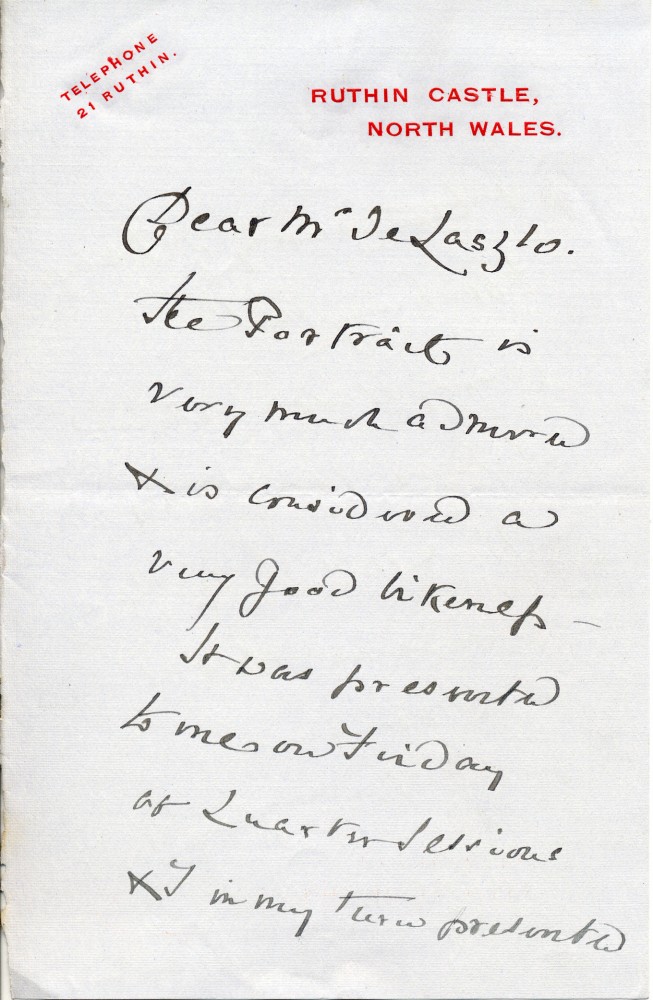 TELEPHONE
21 RUTHIN.
RUTHIN CASTLE,
NORTH WALES.
Dear Mr De Laszlo.
The Portrait is
very much admired
& is considered a
very good likeness –
It was presented
to me on Friday
at Quarter Sessions
& I in my turn presented